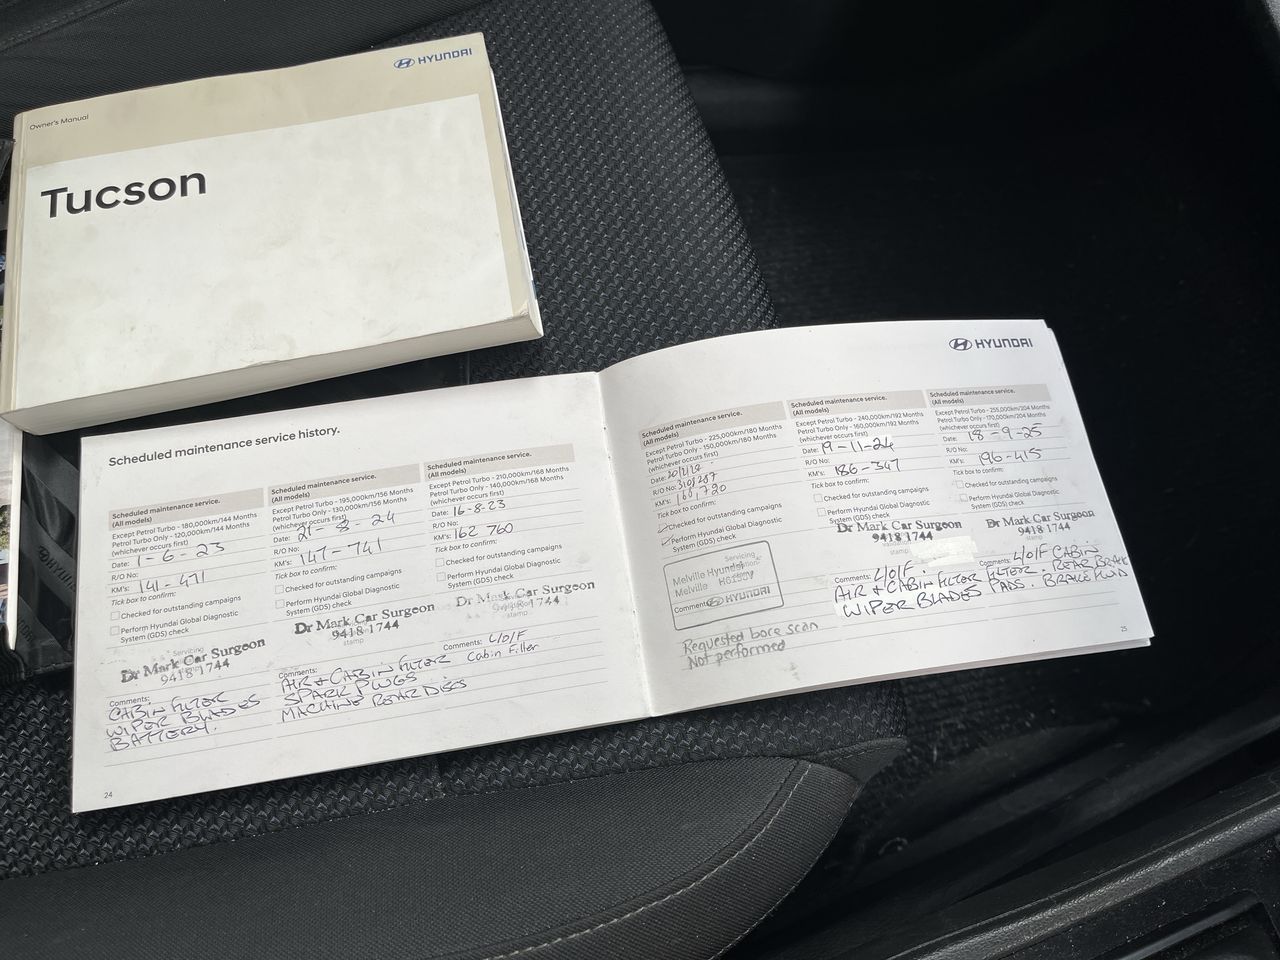 HYUNDAI
Owner's Manual
Tucson
Scheduled maintenance service history.
Scheduled maintenance service.
(All models)
Except Petrol Turbo - 180,000km/144 Months
Petrol Turbo Only - 120,000km/144 Months
(whichever occurs first)
Date: 1-6-23
R/O No:
KM's: 141-471
Tick box to confirm:
Checked for outstanding campaigns
Perform Hyundai Global Diagnostic
System (GDS) check
Servicing
Dr Mark Car Surgeon
9418 1744
Comments:
CABIN FILTER
WIPER BLADES
BATTERY.
24
Scheduled maintenance service.
(All models)
Except Petrol Turbo - 195,000km/156 Months
Petrol Turbo Only - 130,000km/156 Months
(whichever occurs first)
Date: 21-8-24
R/O No:
KM's: 147-741
Tick box to confirm:
Checked for outstanding campaigns
Perform Hyundai Global Diagnostic
System (GDS) check
Dr Mark Car Surgeon
9418 1744
stamp
Comments:
AIR & CABIN FILTER
SPARK PLUGS
MACHINE REAR DISCS
Scheduled maintenance service.
(All models)
Except Petrol Turbo - 210,000km/168 Months
Petrol Turbo Only - 140,000km/168 Months
(whichever occurs first)
Date: 16-8-23
R/O No:
KM's: 162 760
Tick box to confirm:
Checked for outstanding campaigns
Perform Hyundai Global Diagnostic
System (GDS) check
Dr Mark Car Surgeon
9418 1744
Comments: L/O/F
Cabin Filter
HYUNDAI
Scheduled maintenance service.
(All models)
Except Petrol Turbo - 225,000km/180 Months
Petrol Turbo Only - 150,000km/180 Months
(whichever occurs first)
Date:
R/O No: 310287
KM's:
Tick box to confirm:
Checked for outstanding campaigns
Perform Hyundai Global Diagnostic
System (GDS) check
Servicing
Melville Hyundai
Melville
Comments
HYUNDAI
Requested bore scan
Not performed
Scheduled maintenance service.
(All models)
Except Petrol Turbo - 240,000km/192 Months
Petrol Turbo Only - 160,000km/192 Months
(whichever occurs first)
Date: 19-11-24
R/O No:
KM's: 186-347
Tick box to confirm:
Checked for outstanding campaigns
Perform Hyundai Global Diagnostic
System (GDS) check
Dr Mark Car Surgeon
9418 1744
stamp
Comments: L/O/F
AIR & CABIN FILTER
WIPER BLADES
Scheduled maintenance service.
(All models)
Except Petrol Turbo - 255,000km/204 Months
Petrol Turbo Only - 170,000km/204 Months
(whichever occurs first)
Date: 18-9-25
R/O No:
KM's: 196-415
Tick box to confirm:
Checked for outstanding campaigns
Perform Hyundai Global Diagnostic
System (GDS) check
Dr Mark Car Surgeon
9418 1744
Comments: L/O/F CABIN
FILTER. REAR BRAKE
PADS. BRAKE FLUID
25